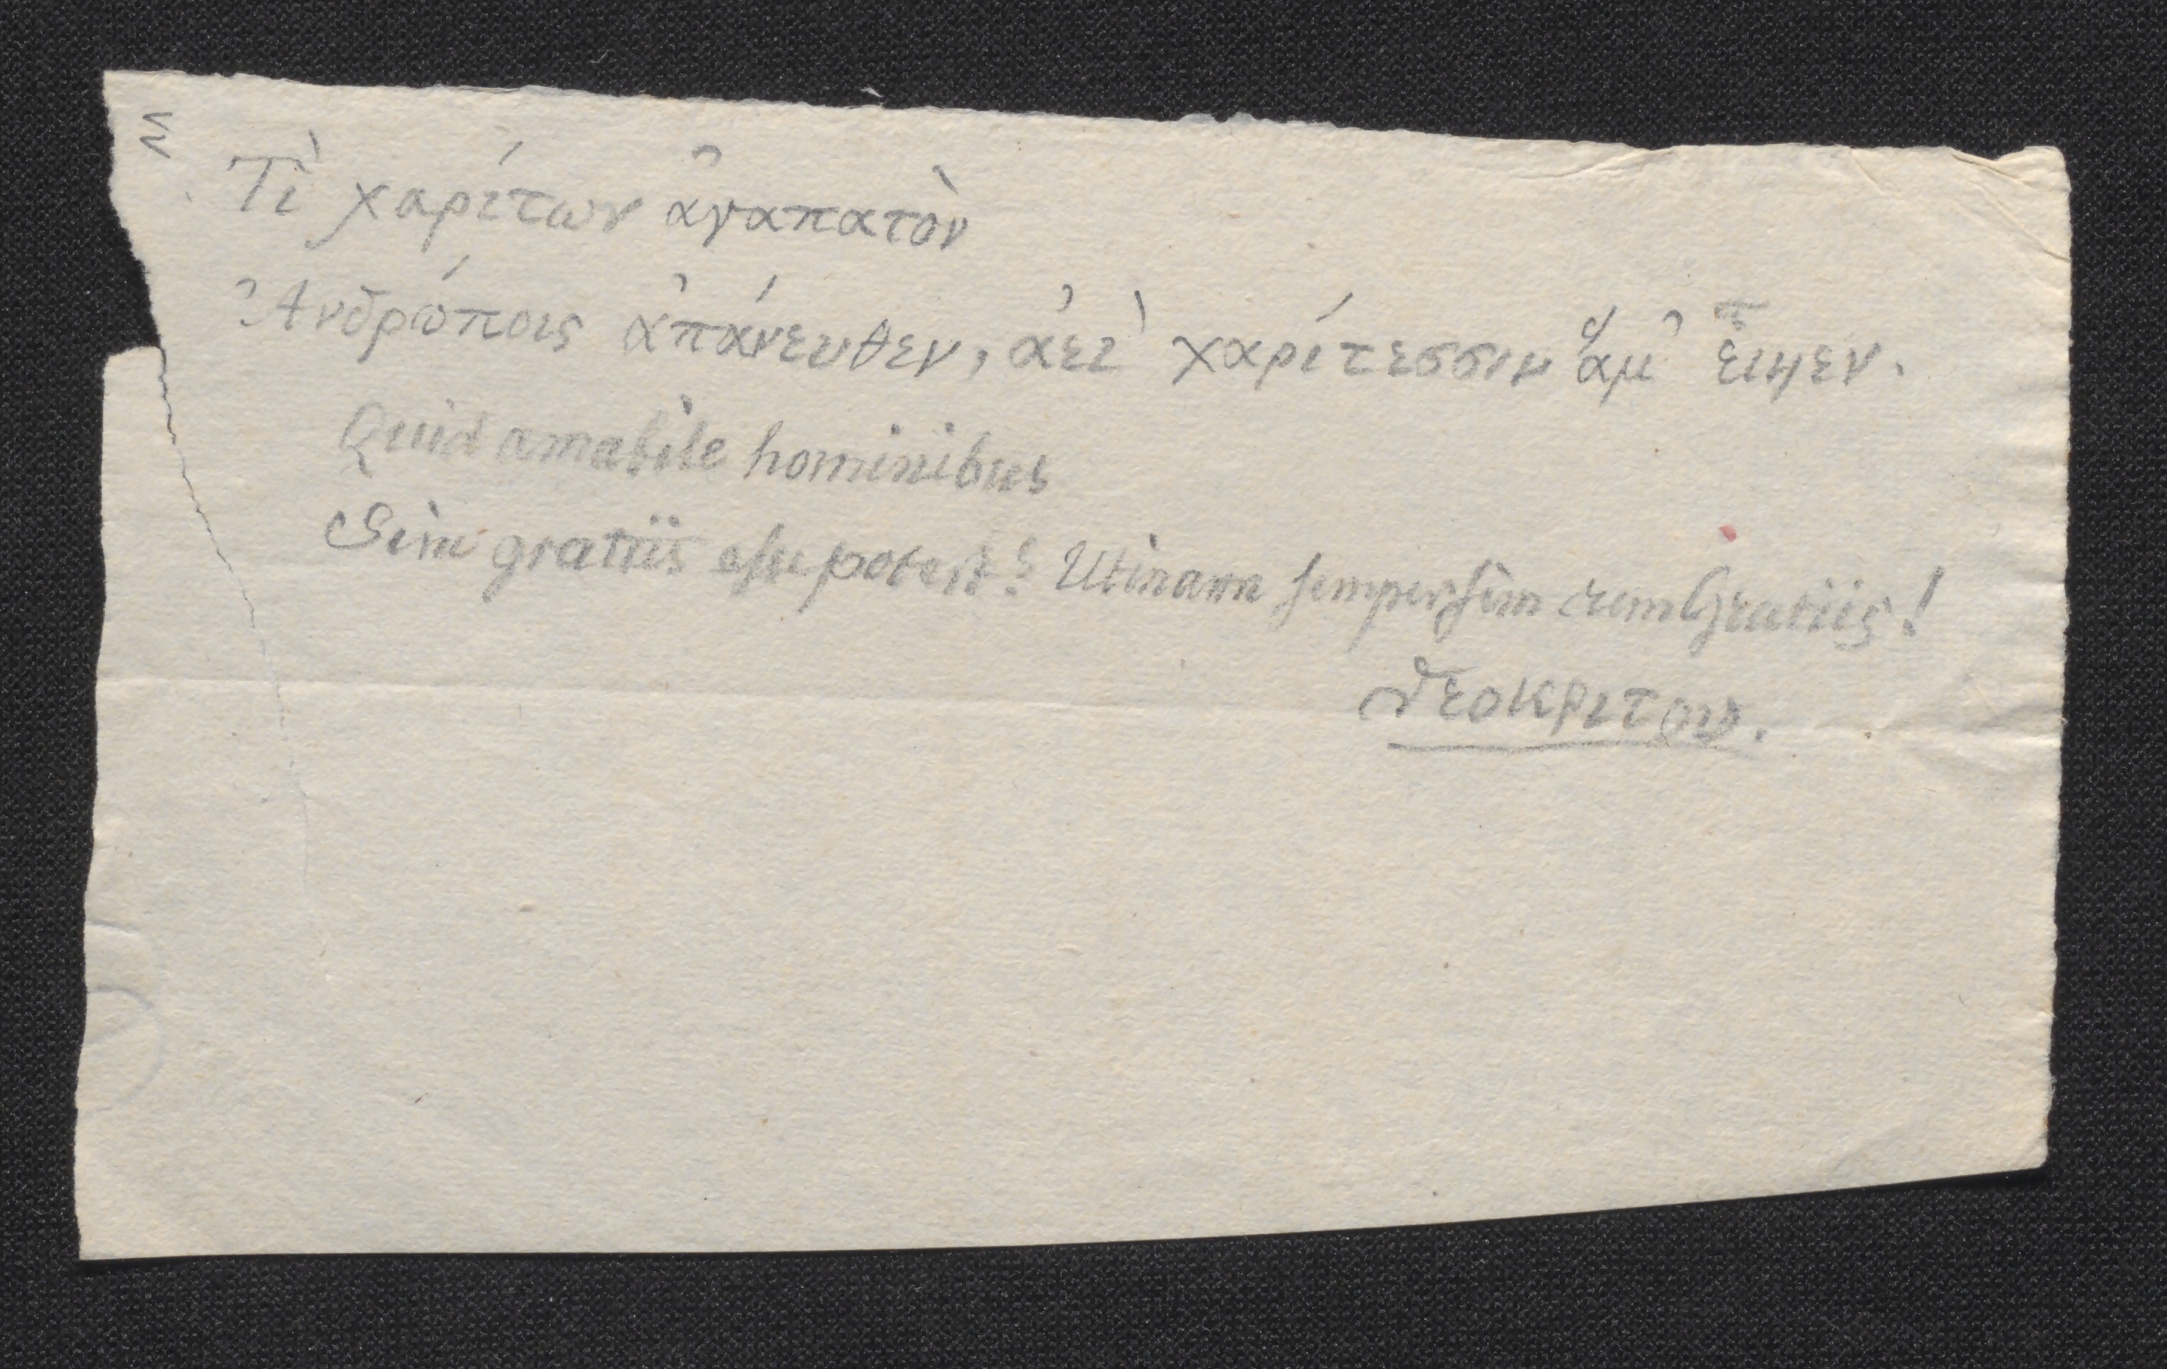 Τὶ χαρίτων ἀγαπατὸν
Ἀνθρώποις ἀπάνευθεν, ἀεὶ χαρίτεσσιν ἅμ' εἴμεν.
Quid amabile hominibus
Sine gratiis esse potest? Utinam semper sim cum Gratiis!
θεοκριτου.